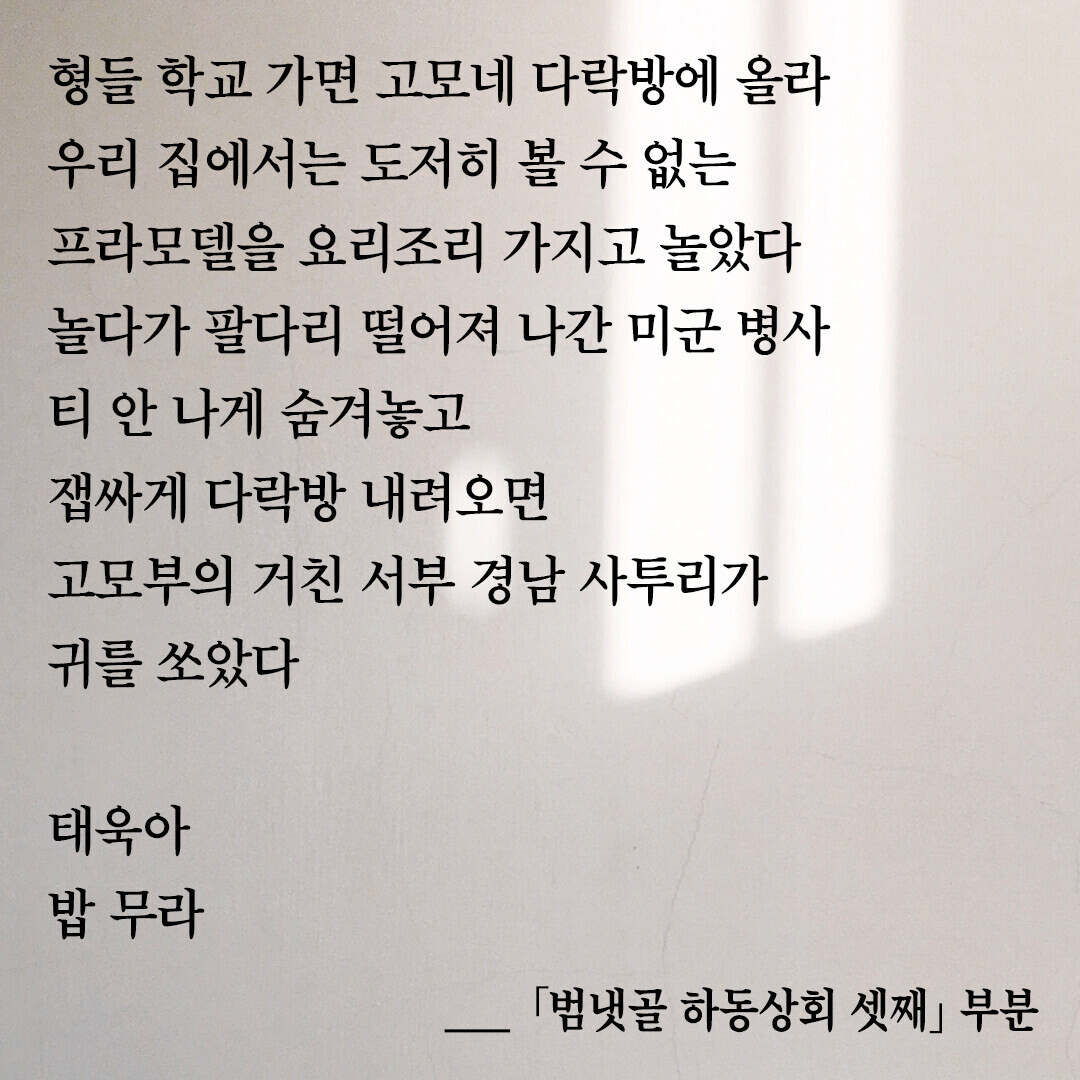 형들 학교 가면 고모네 다락방에 올라
우리 집에서는 도저히 볼 수 없는
프라모델을 요리조리 가지고 놀았다
놀다가 팔다리 떨어져 나간 미군 병사
티 안 나게 숨겨놓고
잽싸게 다락방 내려오면
고모부의 거친 서부 경남 사투리가
귀를 쏘았다

태욱아
밥 무라
___ 「범냇골 하동상회 셋째」 부분